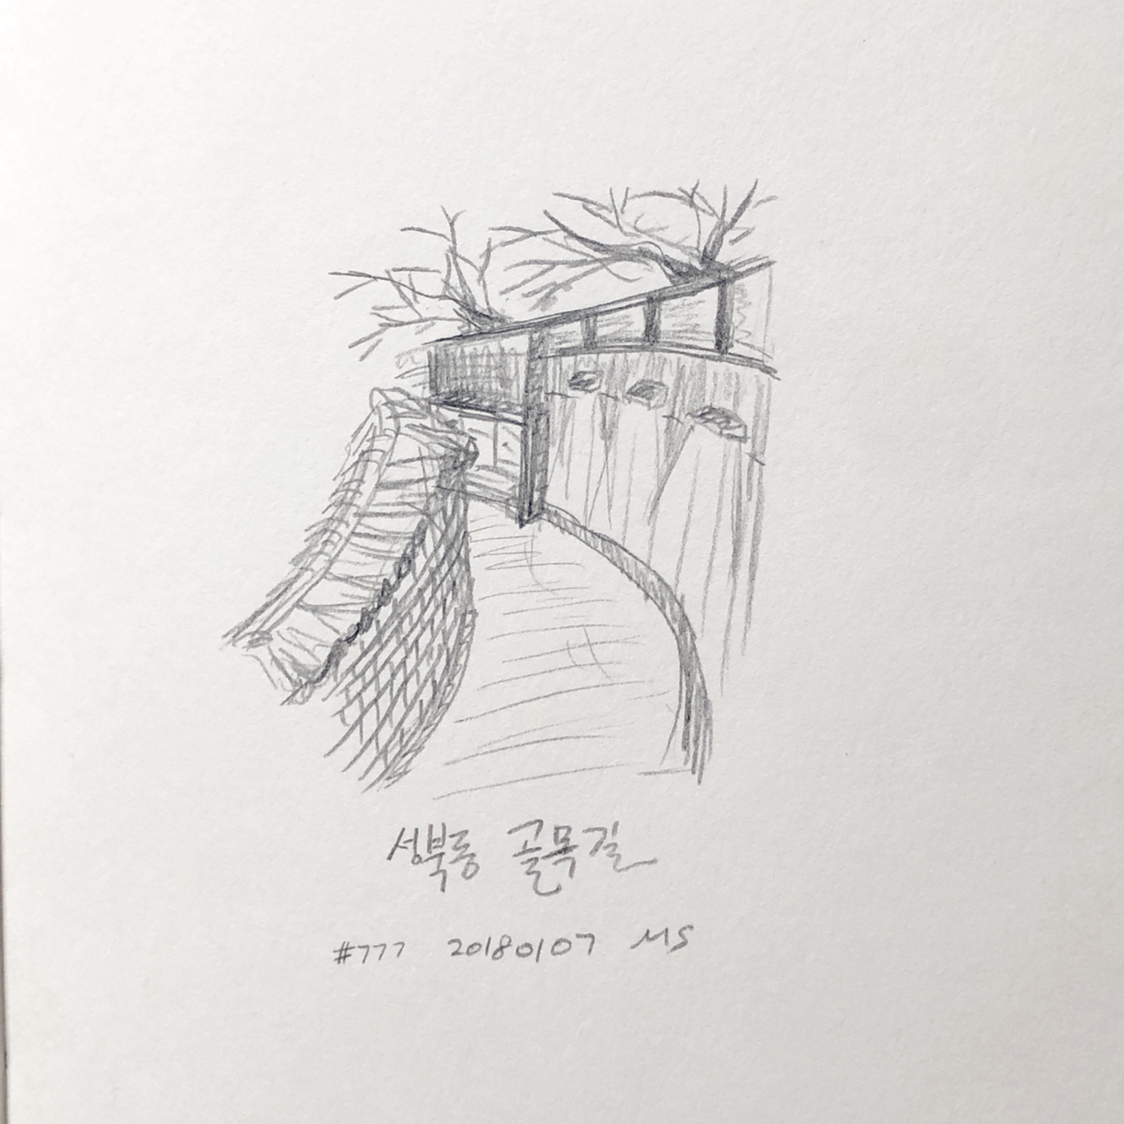 성북동 골목길
#777 20180107 MS